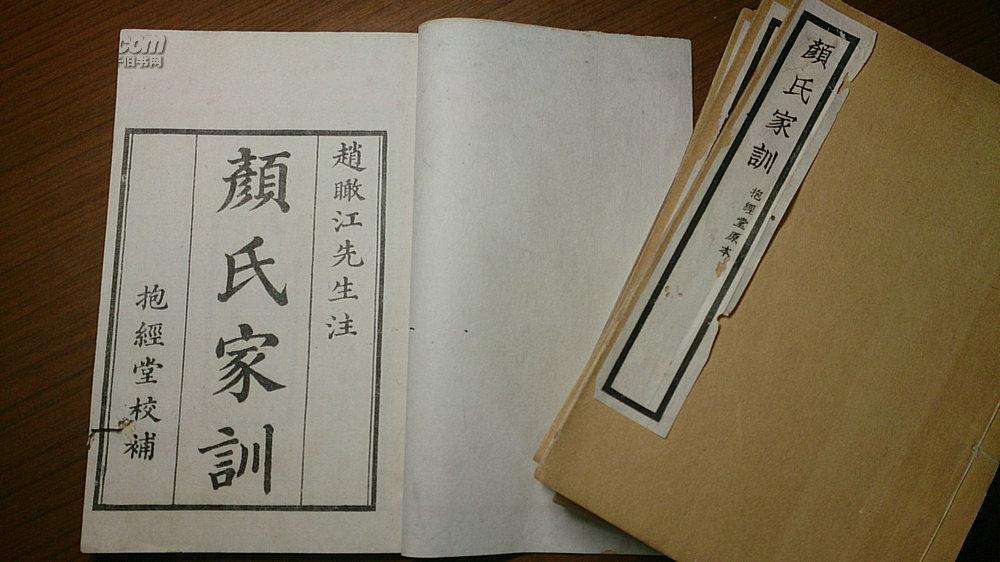 .com
旧书网
趙瞰江先生注
顏氏家訓
抱經堂校補
顏氏家訓
抱經堂原本